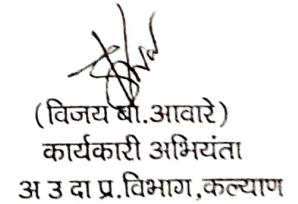 (विजय बी.आवारे)
कार्यकारी अभियंता
अ उ दा प्र.विभाग,कल्याण